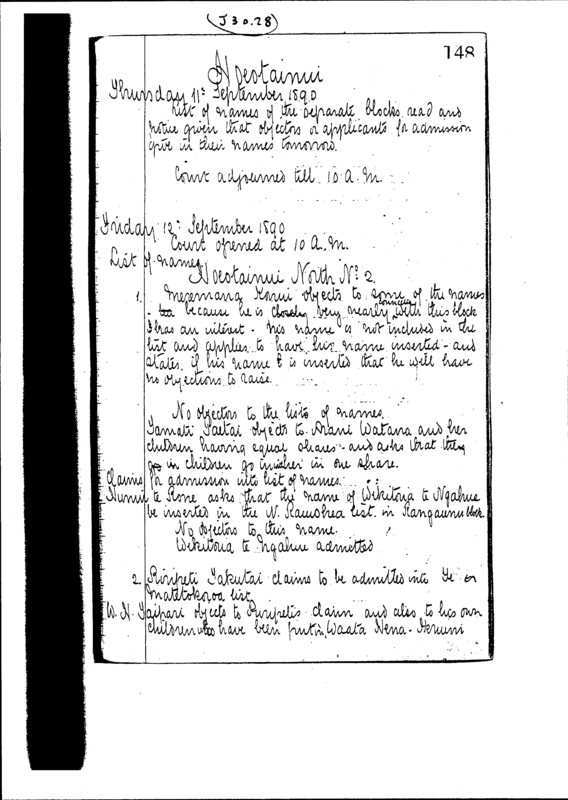 J 30.28
148
Hoeotainui
Thursday 11th September 1890
List of names of the separate blocks read and
notice given that objectors or applicants for admission
give in their names tomorrow.
Court adjourned till 10 A.M.
Friday 12th September 1890
Court opened at 10 A.M.
List of names
Hoeotainui North No. 2
1. Meremana Konui objects to some of the names
because he is closely very nearly connected with this block
& has an interest - his name is not included in the
list and applies to have his name inserted - and
states if his name is inserted that he will have
no objections to raise.
No objectors to the lists of names.
Tamati Paetai objects to Arani Watana and her
children having equal shares - and asks that they
go in children go in with her in one share.
Claims for admission into list of names.
te Kone asks that the name of Wikitoria te Ngahue
be inserted in the N. list in block
No objectors to this name.
Wikitoria te Ngahue admitted
2. Ruripeti Takutai claims to be admitted into
Matatokoroa list
W. H. Taipari objects to Ruripeti's claim and also to his own
children who have been put in, Waata Hena -